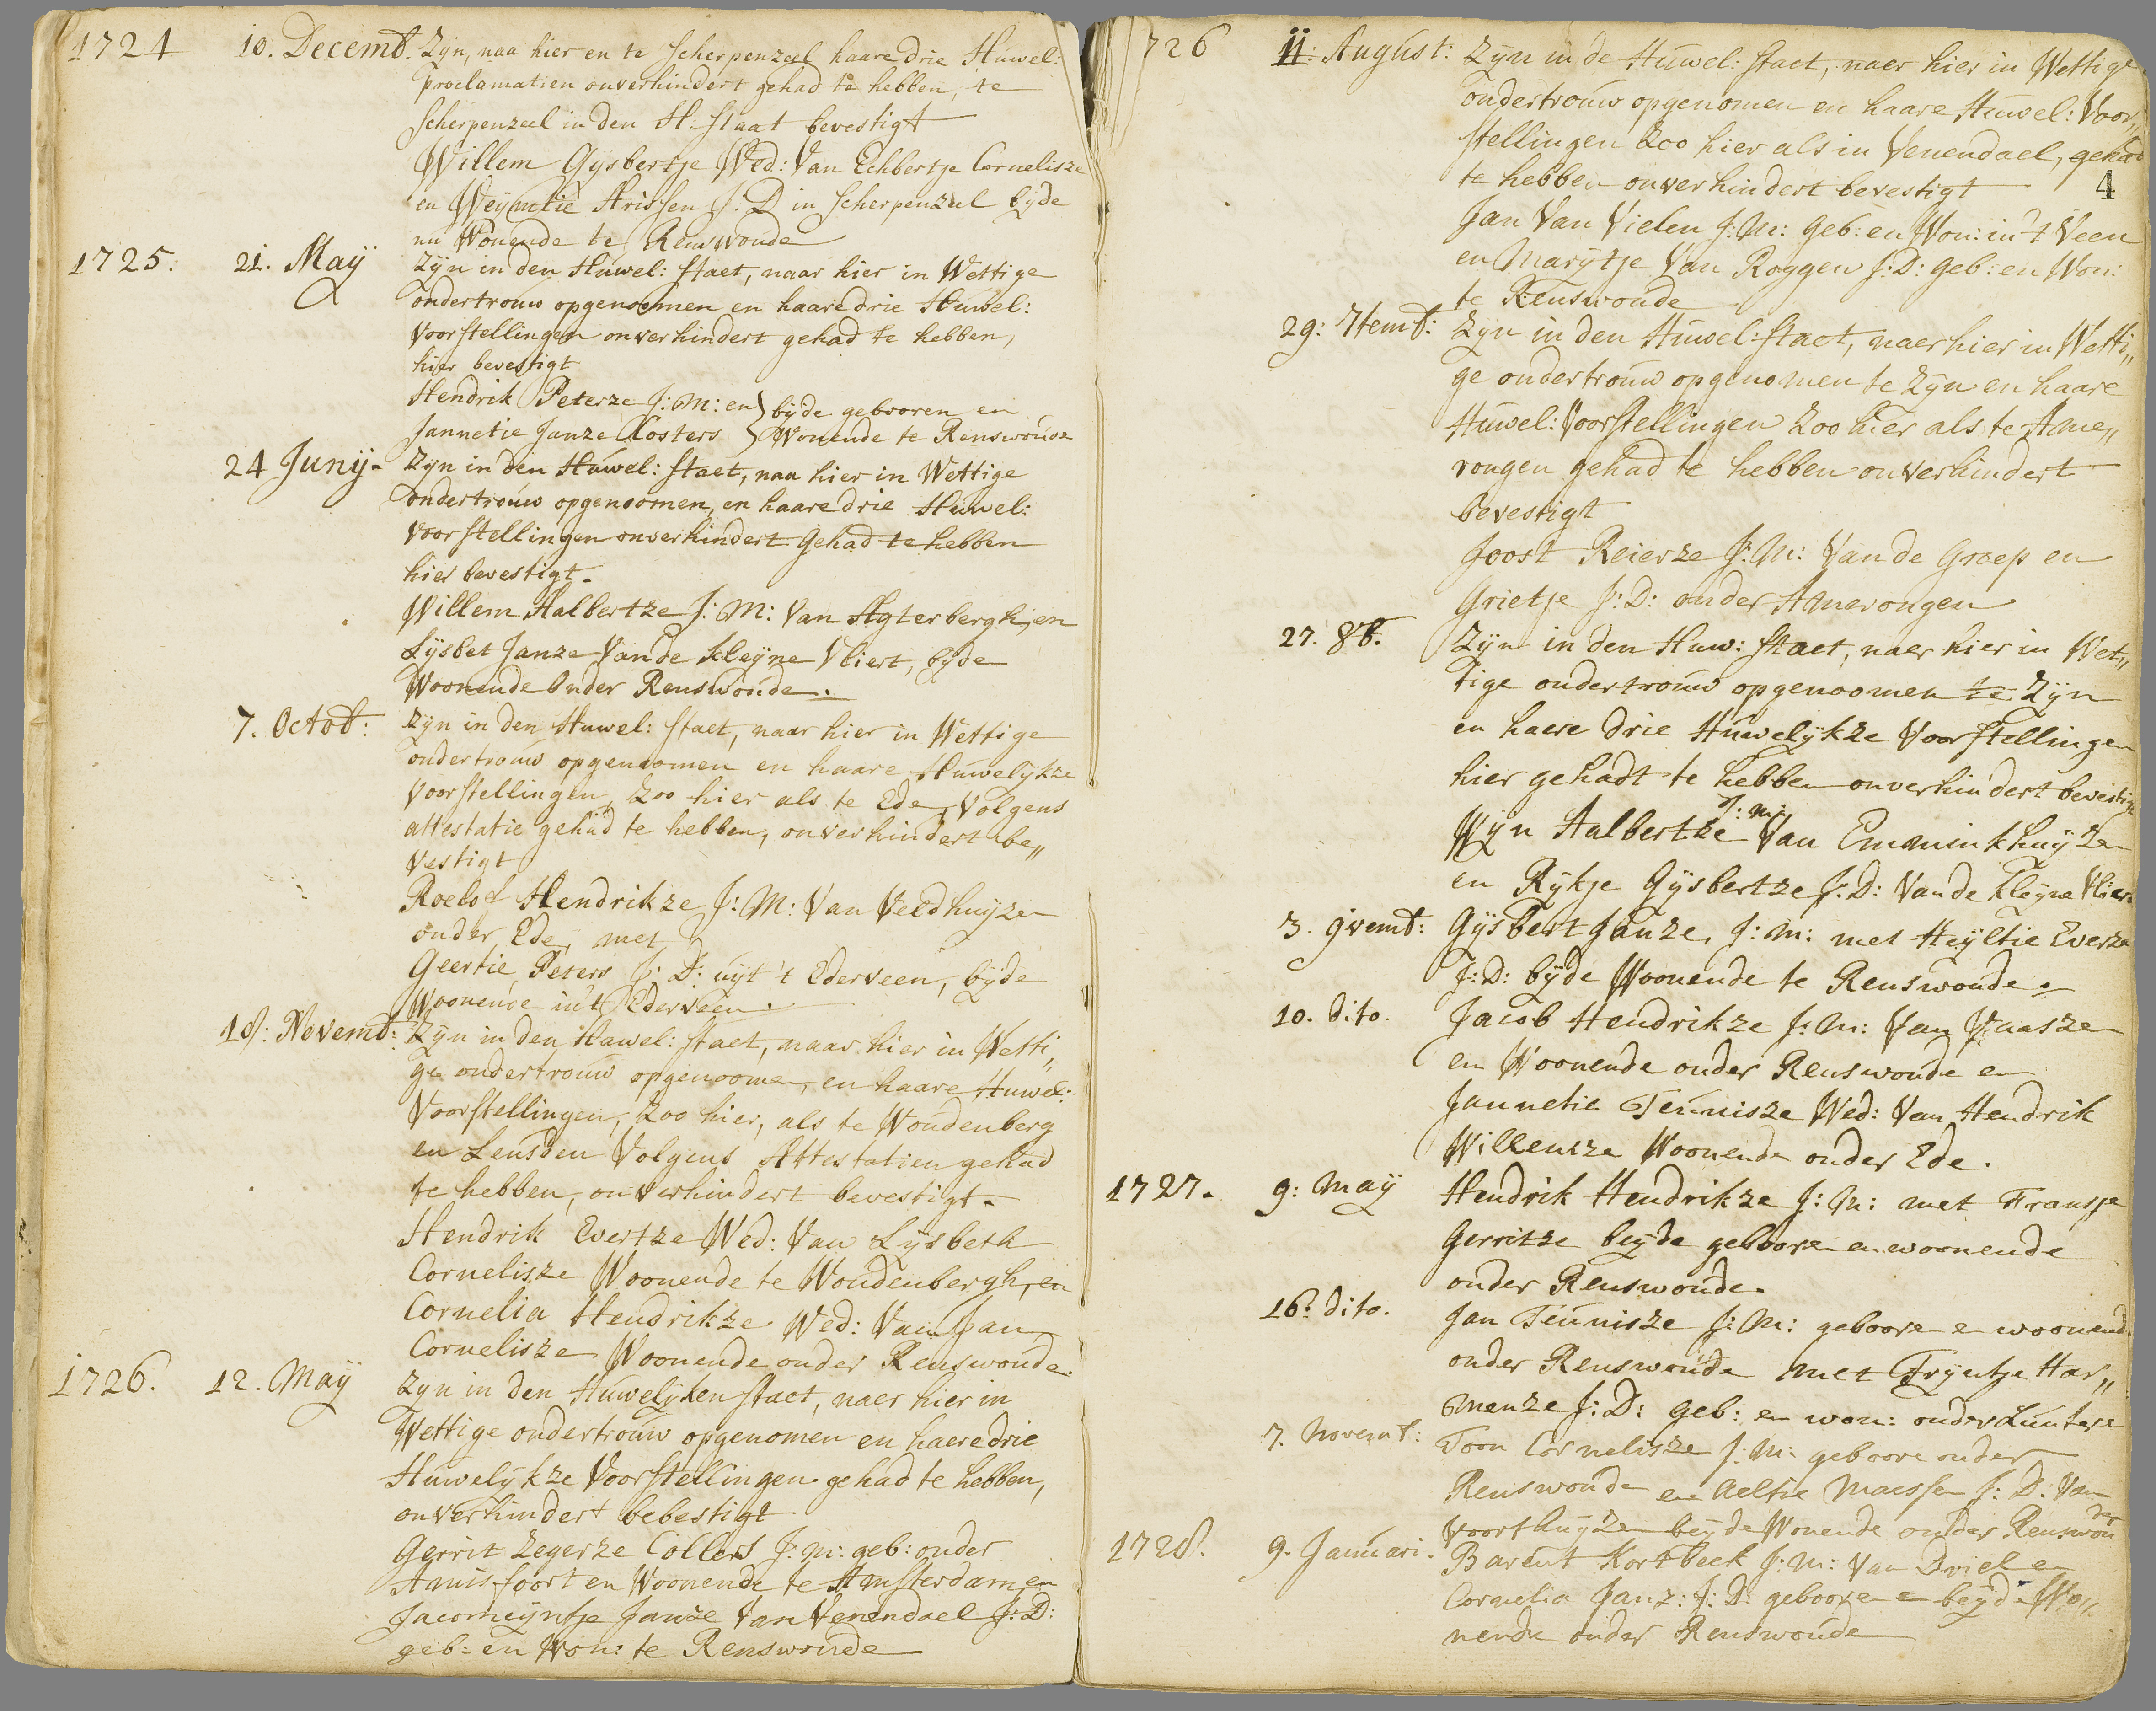 1724 10. Decemb. Zijn, naa hier en te Scherpenzeel haare drie Huwel:
proclamatien onverhindert gehad te hebben, te
Scherpenzeel in den H. staat bevestigt
Willem Gysbertje Wed: Van Echbertje Cornelisze
en Weijmtie Arissen J. D in Scherpenzeel byde
nu Wonende te Renswoude
1725. 21. Maÿ Zijn in den Huwel: staet, naar hier in Wettige
ondertrouw opgenoemen en haare drie Huwel:
Voorstellingen onverhindert gehad te hebben,
hier bevestigt
Hendrik Peterze J: M: en } byde gebooren en
Jannetie Janze Kosters } Wonende te Renswoude
24 Junij. Zijn in den Huwel: staet, naa hier in Wettige
ondertrouw opgenoomen, en haare drie Huwel:
voorstellingen onverhindert Gehad te hebben
hier bevestigt.
Willem Halbertze J: M: Van Agterbergh, en
Lijsbet Janze Vande Kleijne Vliert, byde
Woonende Onder Renswoude.
7. Octob: Zijn in den Huwel: staet, naar hier in Wettige
ondertrouw opgenoomen en haare Huwelijkze
Voorstellingen, zoo hier als te Ede, Volgens
attestatie gehad te hebben, onverhindert be„
vestigt
Roelof Hendrikze J: M: Van Veldhuijze
onder Ede, met
Geertie Peters J: D: uijt 't Ederveen, byde
Woonende in't Ederveen.
18: Novemb: Zijn in den Huwel: staet, naar hier in Wetti„
ge ondertrouw opgenoome, en haare Huwel:
Voorstellingen, zoo hier, als te Woudenberg
en Leusden Volgens Attestatien gehad
te hebben, onverhindert bevestigt.
Hendrik Evertze Wed: Van Lijsbeth
Cornelisze Woonende te Woudenbergh, en
Cornelia Hendrikze Wed: Van Jan
Cornelisze Woonende onder Renswoude.
1726. 12. Maÿ Zijn in den Huwelijken staet, naer hier in
Wettige ondertrouw opgenomen en haere drie
Huwelijkze Voorstellingen gehad te hebben,
onverhindert bebestigt
Gerrit Zegerze Collers J: m: geb: onder
Amisfoort en Woonende te Amsterdam, en
Jacomeijntje Janze Van Venendael J: D:
geb: en Won: te Renswoude
726 11: August: Zijn in de Huwel: staet, naer hier in Wettige
ondertrouw opgenomen en haare Huwel: Voor„
stellingen zoo hier als in Venendael, gehad
te hebben onverhindert bevestigt
4
Jan Van Vielen J: M: Geb: en Won: in 't Veen
en Marijtje Van Roggen J: D: Geb: en Won:
te Renswoude
29: 7temb: Zijn in den Huwel: staet, naer hier in Wetti„
ge ondertrouw opgenomen te Zijn en haare
Huwel: Voorstellingen Zoo hier als te Ame„
rongen gehad te hebben onverhindert
bevestigt
Joost Reierze J: M: Van de Groep en
Grietje J: D: onder Amerongen
27. 8b. Zijn in den Huw: staet, naer hier in Wet„
tige ondertrouw opgenoomen te Zijn
en haere drie Huwelijkze Voorstellingen
hier gehadt te hebben onverhindert bevestigt
J: m:
Wijn Aalbertze Van Emminkhuijze
en Rijkje Gijsbertze J: D: Vande Kleijne Vliert
3. 9vemb: Gijsbert Janze, J: m: met Heijltie Everze
J: D: byde Woonende te Renswoude.
10. dito. Jacob Hendrikze J: M: Van Vaasze
en Woonende onder Renswoude en
Jannetie Teunisze Wed: Van Hendrik
Willemsze Woonende onder Ede.
1727. 9: Maÿ Hendrik Hendrikze J: M: met Fransje
Gerritze beyde geboore en woonende
onder Renswoude.
16: dito. Jan Teunisze J: M: geboore en woonend
onder Renswoude met Trijntje Har„
menze J: D: geb: en won: onder Luntere
7. Novemb: Toon Cornelisze J: M: geboore onder
Renswoude en Aeltie Maessen J: D: Van
Voorthuijze beyde Wonende onder Renswou
der
1728. 9. Januari. Barent Kortbeek J: M: Van Driel en
Cornelia Janz: J: D: geboore en beyde Wo„
nende onder Renswoude